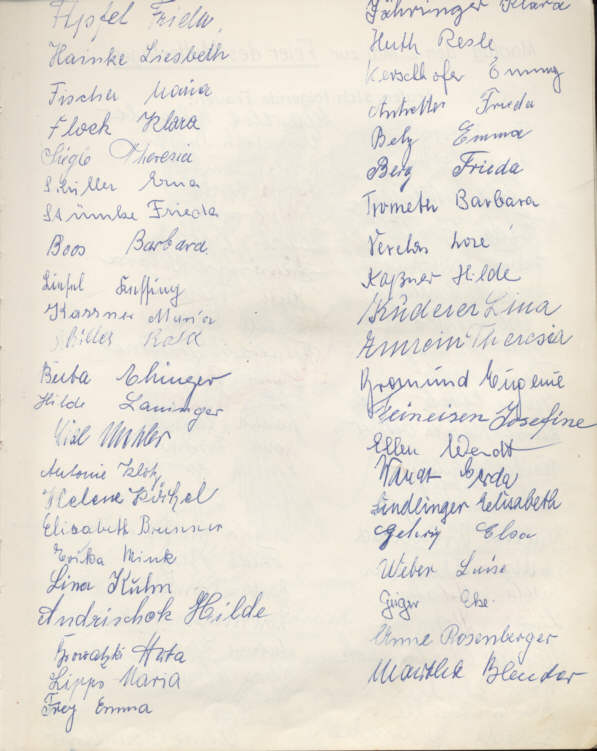 Apfel Frieda
Hainke Liesbeth
Fischer Maria
Flock Klara
Siegle Theresia
Schüller Erna
Stümke Frieda
Boos Barbara
Kassner Maria
Rosa
Berta Ehinger
Hilde Laninger
Antonie Klotz
Helene Köchel
Elisabeth Brunner
Erika Mink
Lina Kuhn
Andrischok Hilde
Herta
Lipps Maria
Frey Emma
Jähringer Klara
Huth Resle
Kerschhofer Emmy
Frieda
Betz Emma
Berg Frieda
Trometer Barbara
Kaßner Hilde
Kuderer Lina
Amrein Theresia
Bromund Eugenie
Feineisen Josefine
Ellen Wendt
Gerda
Lindlinger Elisabeth
Gehrig Elsa
Weber Luise
Geiger Else
Anne Rosenberger
Blender